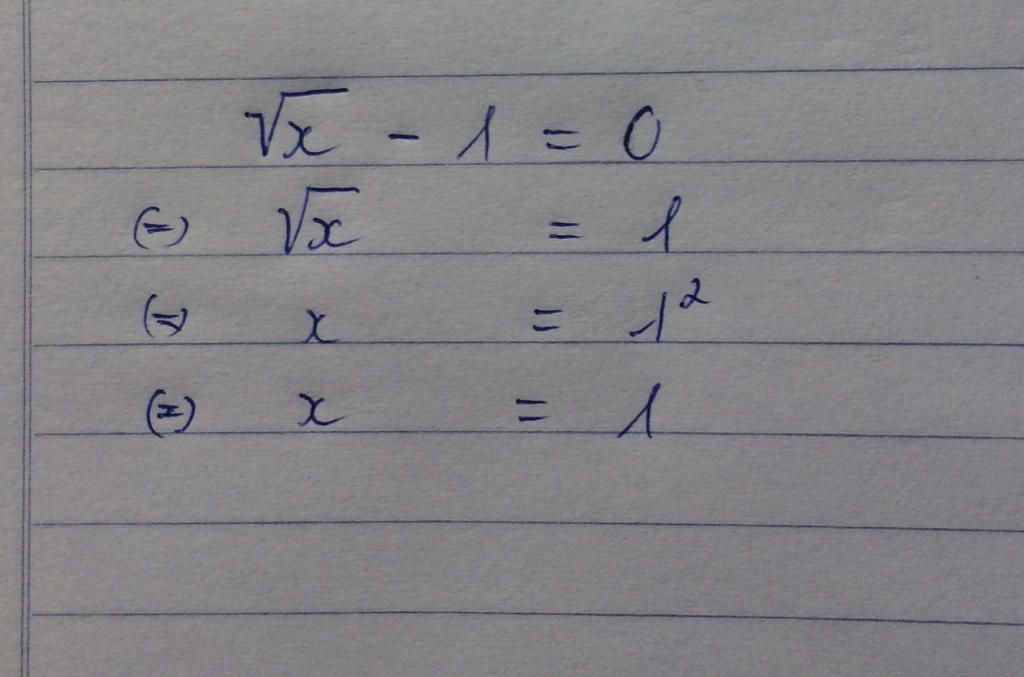 √x - 1 = 0
(=) √x = 1
(=) x = 1²
(=) x = 1